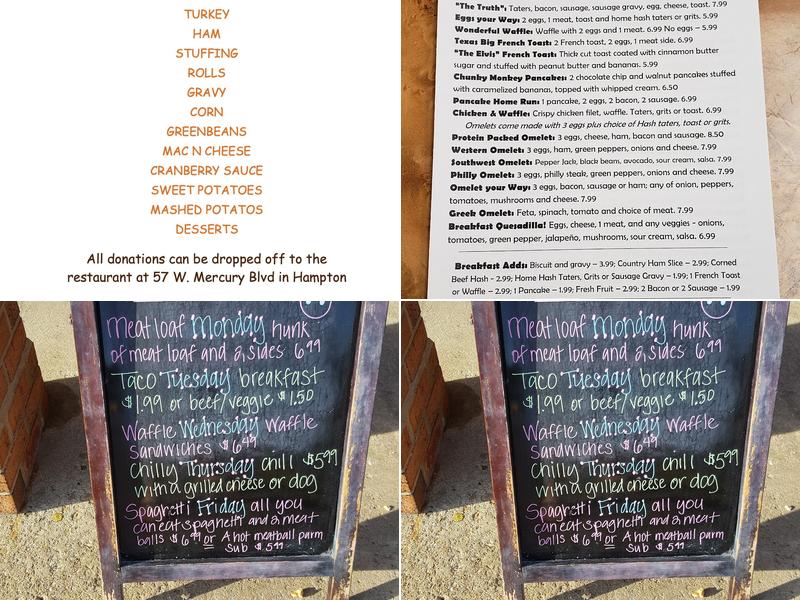 TURKEY
HAM
STUFFING
ROLLS
GRAVY
CORN
GREENBEANS
MAC N CHEESE
CRANBERRY SAUCE
SWEET POTATOES
MASHED POTATOS
DESSERTS
All donations can be dropped off to the
restaurant at 57 W. Mercury Blvd in Hampton
"The Truth": Taters, bacon, sausage, sausage gravy, egg, cheese, toast. 7.99
Eggs your Way: 2 eggs, 1 meat, toast and home hash taters or grits. 5.99
Wonderful Waffle: Waffle with 2 eggs and 1 meat. 6.99 No eggs – 5.99
Texas Big French Toast: 2 French toast, 2 eggs, 1 meat side. 6.99
"The Elvis" French Toast: Thick cut toast coated with cinnamon butter
sugar and stuffed with peanut butter and bananas. 5.99
Chunky Monkey Pancakes: 2 chocolate chip and walnut pancakes stuffed
with caramelized bananas, topped with whipped cream. 6.50
Pancake Home Run: 1 pancake, 2 eggs, 2 bacon, 2 sausage. 6.99
Chicken & Waffle: Crispy chicken filet, waffle. Taters, grits or toast. 6.99
Omelets come made with 3 eggs plus choice of Hash taters, toast or grits.
Protein Packed Omelet: 3 eggs, cheese, ham, bacon and sausage. 8.50
Western Omelet: 3 eggs, ham, green peppers, onions and cheese. 7.99
Southwest Omelet: Pepper Jack, black beans, avocado, sour cream, salsa. 7.99
Philly Omelet: 3 eggs, philly steak, green peppers, onions and cheese. 7.99
Omelet your Way: 3 eggs, bacon, sausage or ham; any of onion, peppers,
tomatoes, mushrooms and cheese. 7.99
Greek Omelet: Feta, spinach, tomato and choice of meat. 7.99
Breakfast Quesadilla! Eggs, cheese, 1 meat, and any veggies - onions,
tomatoes, green pepper, jalapeño, mushrooms, sour cream, salsa. 6.99
Breakfast Adds: Biscuit and gravy – 3.99; Country Ham Slice – 2.99; Corned
Beef Hash - 2.99; Home Hash Taters, Grits or Sausage Gravy – 1.99; 1 French Toast
or Waffle – 2.99; 1 Pancake – 1.99; Fresh Fruit – 2.99; 2 Bacon or 2 Sausage – 1.99
Meat loaf Monday hunk
of meat loaf and 2 sides 6.99
Taco Tuesday breakfast
$1.99 or beef/veggie $1.50
Waffle Wednesday Waffle
Sandwiches $6.49
Chilly Thursday chili $5.99
with a grilled cheese or dog
Spaghetti Friday all you
can eat spaghetti and 2 meat
balls $6.99 or A hot meatball parm
Sub $5.99
Meat loaf Monday hunk
of meat loaf and 2 sides 6.99
Taco Tuesday breakfast
$1.99 or beef/veggie $1.50
Waffle Wednesday Waffle
Sandwiches $6.49
Chilly Thursday chili $5.99
with a grilled cheese or dog
Spaghetti Friday all you
can eat spaghetti and 2 meat
balls $6.99 or A hot meatball parm
Sub $5.99